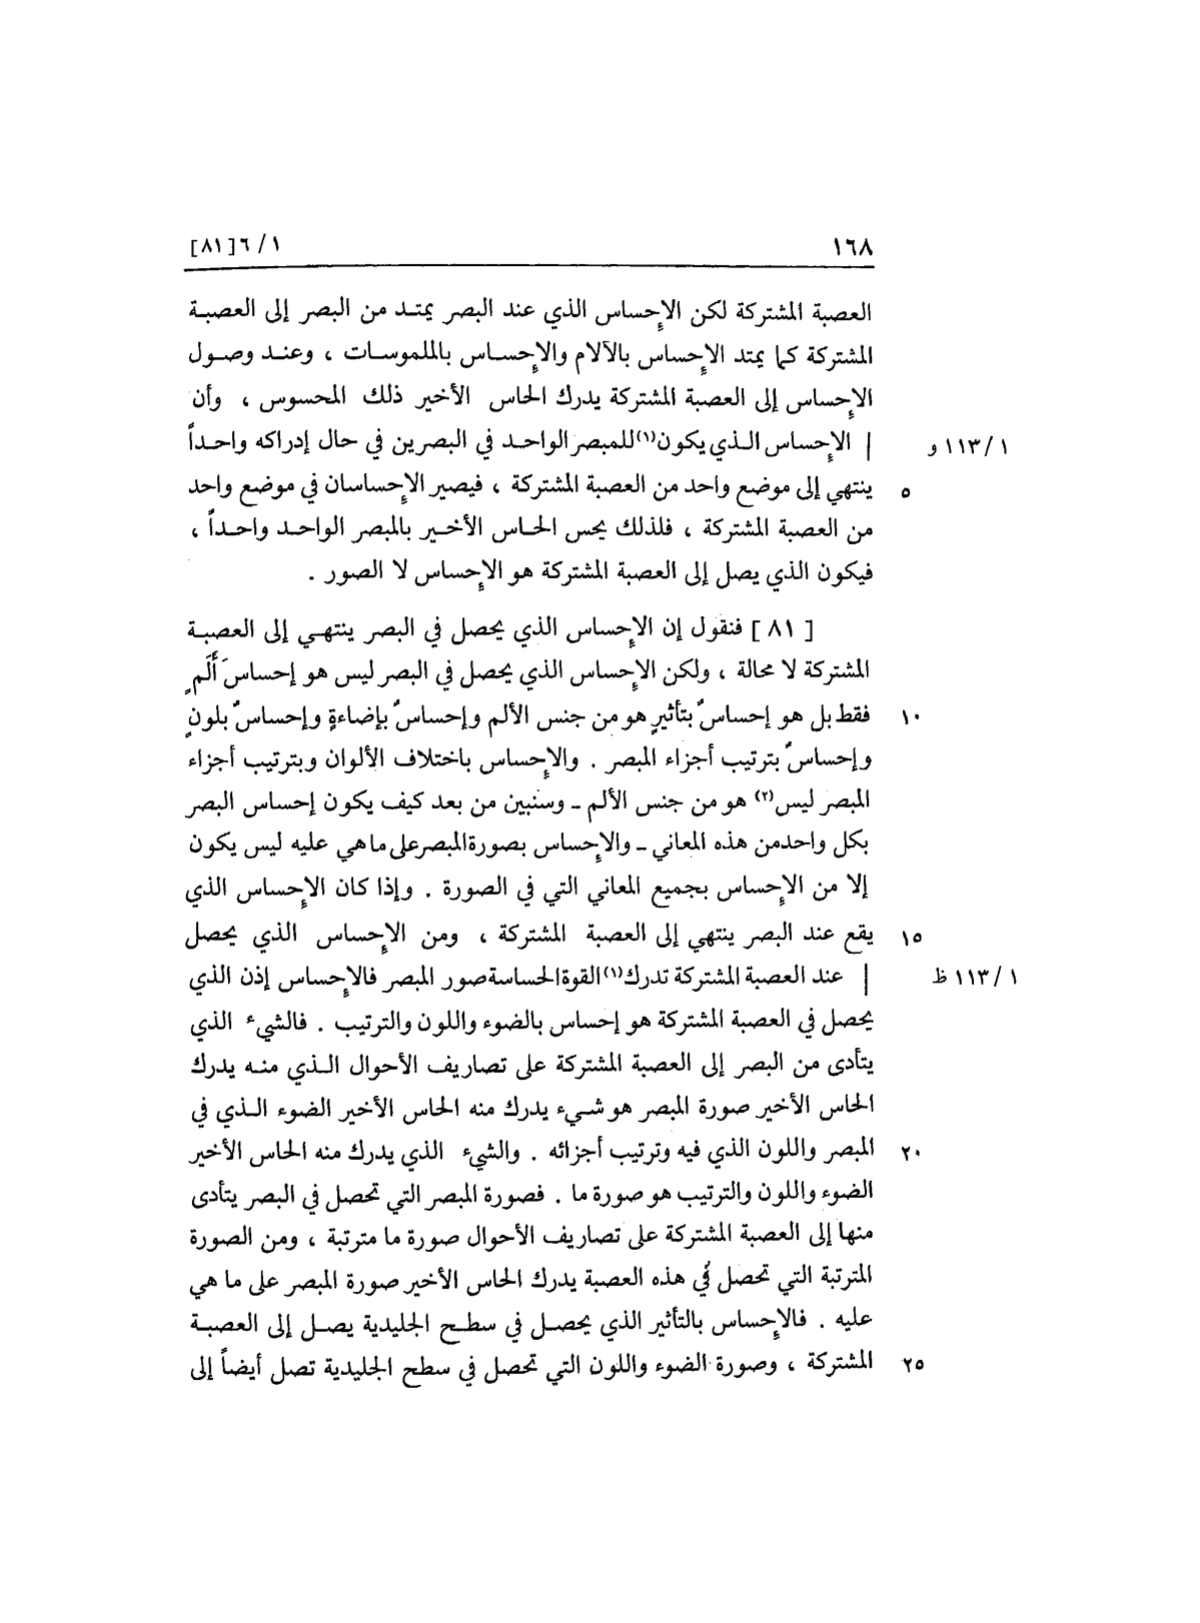 ١٦٨
١ / ٦[٨١]
العصبة المشتركة لكن الإحساس الذي عند البصر يمتـد من البصر إلى العصبـة
المشتركة كما يمتد الإحساس بالآلام والإحسـاس بالملموسـات ، وعنـد وصـول
الإحساس إلى العصبة المشتركة يدرك الحاس الأخير ذلك المحسوس ، وأن
١١٣/١ و | الإحساس الـذي يكون(١) للمبصر الواحـد في البصرين في حال إدراكه واحـداً
٥ ينتهي إلى موضع واحد من العصبة المشتركة ، فيصير الإحساسان في موضع واحد
من العصبة المشتركة ، فلذلك يحس الحـاس الأخـير بالمبصر الواحـد واحـداً ،
فيكون الذي يصل إلى العصبة المشتركة هو الإحساس لا الصور .
[ ٨١ ] فنقول إن الإحساس الذي يحصل في البصر ينتهـي إلى العصبـة
المشتركة لا محالة ، ولكن الإحساس الذي يحصل في البصر ليس هو إحساسَ أَلَمٍ
١٠ فقط بل هو إحساسٌ بتأثيرٍ هو من جنس الألم وإحساسٌ بإضاءةٍ وإحساسٌ بلونٍ
وإحساسٌ بترتيب أجزاء المبصر . والإحساس باختلاف الألوان وبترتيب أجزاء
المبصر ليس(٢) هو من جنس الألم ـ وسنبين من بعد كيف يكون إحساس البصر
بكل واحد من هذه المعاني ـ والإحساس بصورة المبصر على ما هي عليه ليس يكون
إلا من الإحساس بجميع المعاني التي في الصورة . وإذا كان الإحساس الذي
١٥ يقع عند البصر ينتهي إلى العصبة المشتركة ، ومن الإحساس الذي يحصل
١١٣/١ ظ | عند العصبة المشتركة تدرك(١) القوة الحساسة صور المبصر فالإحساس إذن الذي
يحصل في العصبة المشتركة هو إحساس بالضوء واللون والترتيب . فالشيء الذي
يتأدى من البصر إلى العصبة المشتركة على تصاريف الأحوال الـذي منـه يدرك
الحاس الأخير صورة المبصر هو شـيء يدرك منه الحاس الأخير الضوء الـذي في
٢٠ المبصر واللون الذي فيه وترتيب أجزائه . والشيء الذي يدرك منه الحاس الأخير
الضوء واللون والترتيب هو صورة ما . فصورة المبصر التي تحصل في البصر يتأدى
منها إلى العصبة المشتركة على تصاريف الأحوال صورة ما مترتبة ، ومن الصورة
المترتبة التي تحصل في هذه العصبة يدرك الحاس الأخير صورة المبصر على ما هي
عليه . فالإحساس بالتأثير الذي يحصـل في سطـح الجليدية يصـل إلى العصبـة
٢٥ المشتركة ، وصورة الضوء واللون التي تحصل في سطح الجليدية تصل أيضاً إلى